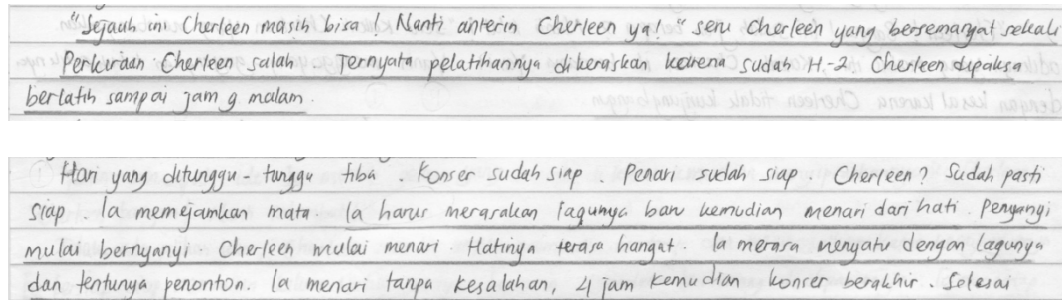 "Sejauh ini Cherleen masih bisa! Nanti anterin Cherleen ya!" seru Cherleen yang bersemangat sekali
Perkiraan Cherleen salah. Ternyata pelatihannya dikeraskan karena sudah H-2 Cherleen dipaksa
berlatih sampai jam 9 malam.
Hari yang ditunggu-tunggu tiba. Konser sudah siap. Penari sudah siap. Cherleen? Sudah pasti
siap. Ia memejamkan mata. Ia harus merasakan lagunya baru kemudian menari dari hati. Penyanyi
mulai bernyanyi Cherleen mulai menari. Hatinya terasa hangat. Ia merasa menyatu dengan lagunya
dan tentunya penonton. Ia menari tanpa kesalahan, 4 jam kemudian konser berakhir. Selesai